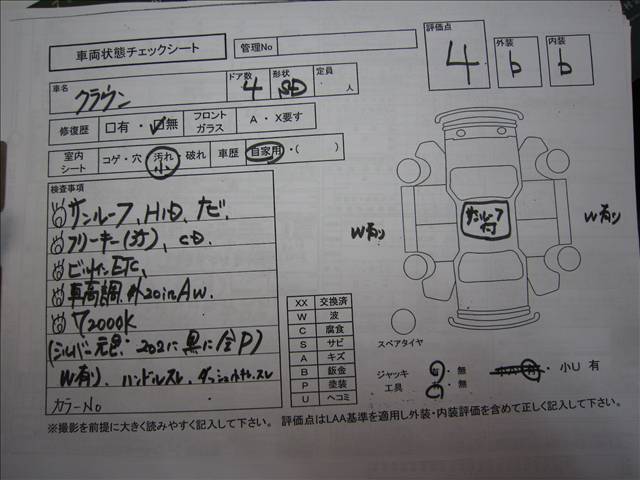 車両状態チェックシート
管理No
評価点
4
外装
b
内装
b
車名
クラウン
ドア数
4
形状
SD
定員
人
修復歴
口有・口無
フロントガラス
A ・ X要す
室内シート
コゲ・穴 汚れ・破れ
小
車歴
自家用・( )
検査事項
サンルーフ、HID、ナビ、
フリーキー(カ)、CD、
ビルトインETC、
車高調、外20inAW.
72000K
(シルバー元色:202に黒に全P)
W有り、ハンドルスレ、ダッシュ
カラーNo
サンルーフ付
W有り
W有り
XX 交換済
W 波
C 腐食
S サビ
A キズ
B 鈑金
P 塗装
U ヘコミ
スペアタイヤ
ジャッキ 有・無
工具 有・無
小U 有
※撮影を前提に大きく読みやすく記入して下さい。 評価点はLAA基準を適用し外装・内装評価を含めて正しく記入して下さい。